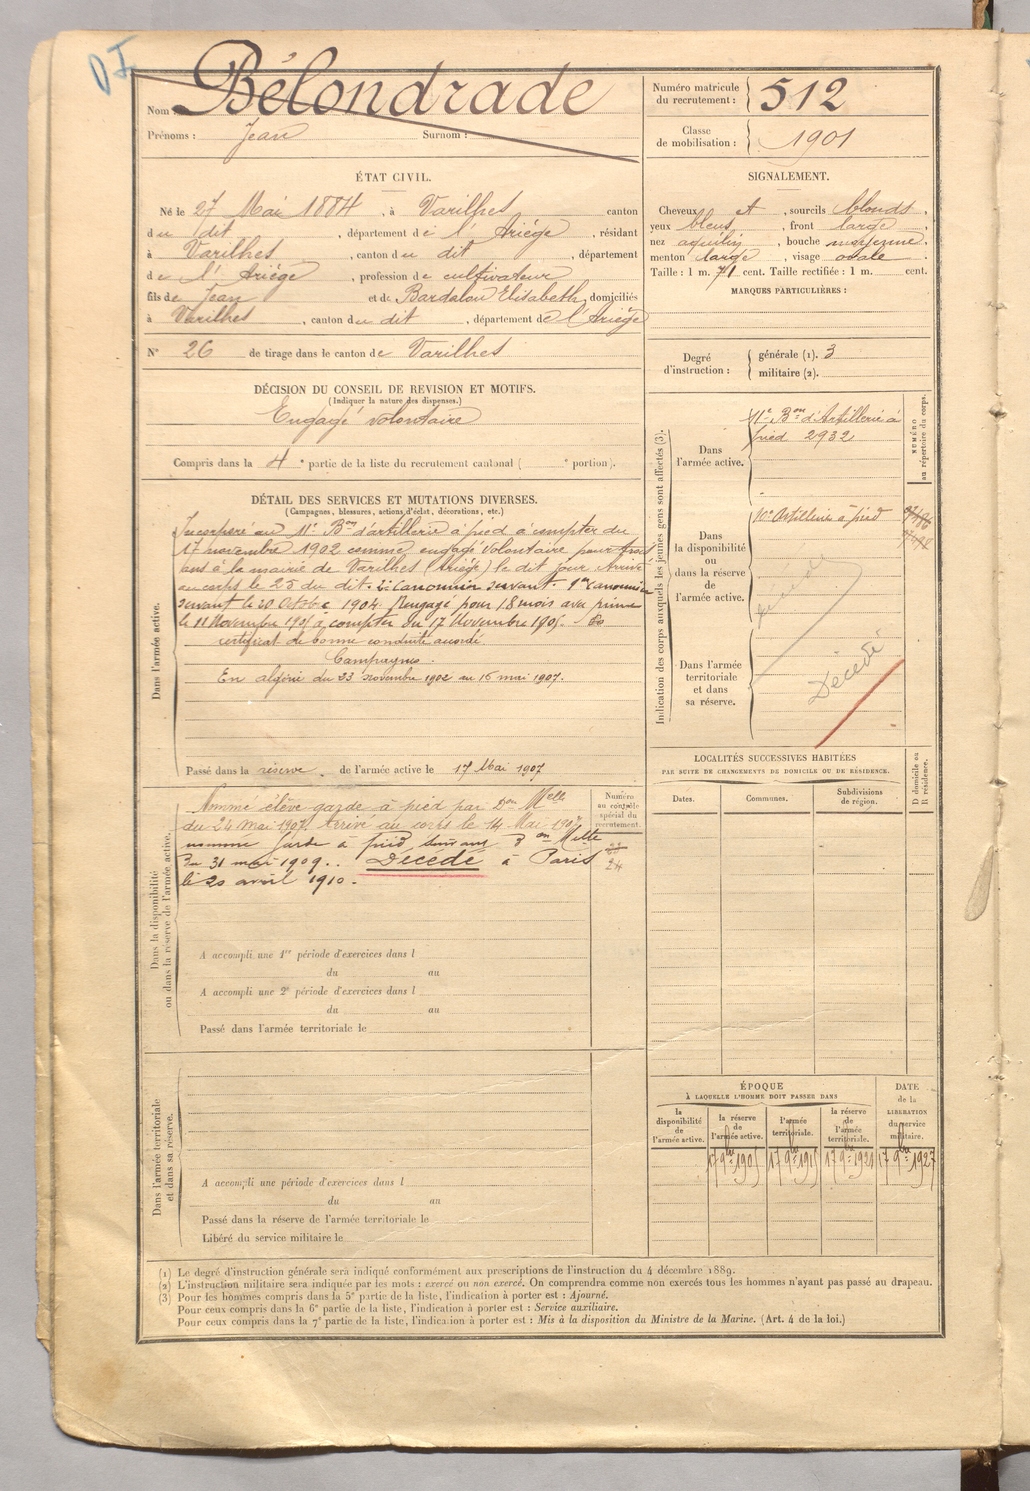 DJ
Nom : Bélondrade
Prénoms : Jean Surnom :
Numéro matricule du recrutement : 512
Classe de mobilisation : 1901
ÉTAT CIVIL.
Né le 27 Mai 1884, à Varilhes canton
du dit, département de l'Ariége, résidant
à Varilhes, canton du dit, département
de l'Ariége, profession de cultivateur
fils de Jean et de Bardalou Elisabeth, domiciliés
à Varilhes, canton du dit, département de l'Ariége
N° 26 de tirage dans le canton de Varilhes
SIGNALEMENT.
Cheveux et, sourcils blonds,
yeux bleus, front large,
nez aquilin, bouche moyenne,
menton large, visage ovale.
Taille : 1 m. 71 cent. Taille rectifiée : 1 m. cent.
MARQUES PARTICULIÈRES :
Degré d'instruction :
générale (1). 3
militaire (2).
DÉCISION DU CONSEIL DE REVISION ET MOTIFS.
(Indiquer la nature des dispenses.)
Engagé volontaire
Compris dans la 4e partie de la liste du recrutement cantonal ( e portion).
DÉTAIL DES SERVICES ET MUTATIONS DIVERSES.
(Campagnes, blessures, actions d'éclat, décorations, etc.)
Dans l'armée active.
Incorporé au 11e Bon d'artillerie à pied à compter du
17 novembre 1902 comme engagé volontaire pour trois
ans à la mairie de Varilhes (Ariége) le dit jour Arrivé
au corps le 25 du dit. 2e Canonnier servant. 1er Canonnier
servant le 20 Octobre 1904. Rengagé pour 18 mois avec prime
le 11 Novembre 1905 à compter du 17 Novembre 1905.
certificat de bonne conduite accordé.
Campagnes.
En algérie du 23 novembre 1902 au 16 mai 1907.
Passé dans la réserve de l'armée active le 17 Mai 1907
Indication des corps auxquels les jeunes gens sont affectés (3).
NUMÉRO au répertoire du corps.
Dans l'armée active.
11e Bon d'Artillerie à
pied 2932
Dans la disponibilité ou dans la réserve de l'armée active.
10e Artillerie à pied
Dans l'armée territoriale et dans sa réserve.
Décédé
LOCALITÉS SUCCESSIVES HABITÉES
PAR SUITE DE CHANGEMENTS DE DOMICILE OU DE RÉSIDENCE.
Dates. Communes. Subdivisions de région. D domicile ou R résidence.
Dans la disponibilité ou dans la réserve de l'armée active.
Numéro au contrôle spécial du recrutement.
Nommé élève garde à pied par Don Melle
du 24 mai 1907. Arrivé au corps le 14 Mai 1907,
nommé Garde à pied suivant Don Melle
du 31 mai 1909.. Décédé à Paris
le 20 avril 1910.
24
A accompli une 1re période d'exercices dans l
du au
A accompli une 2e période d'exercices dans l
du au
Passé dans l'armée territoriale le
Dans l'armée territoriale et dans sa réserve.
A accompli une période d'exercices dans l
du au
Passé dans la réserve de l'armée territoriale le
Libéré du service militaire le
ÉPOQUE
À LAQUELLE L'HOMME DOIT PASSER DANS
DATE de la LIBÉRATION du service militaire.
la disponibilité de l'armée active. la réserve de l'armée active. l'armée territoriale. la réserve de l'armée territoriale.
17 9bre 1905 17 9bre 1915 17 9bre 1921 17 9bre 1927
(1) Le degré d'instruction générale sera indiqué conformément aux prescriptions de l'instruction du 4 décembre 1889.
(2) L'instruction militaire sera indiquée par les mots : exercé ou non exercé. On comprendra comme non exercés tous les hommes n'ayant pas passé au drapeau.
(3) Pour les hommes compris dans la 5e partie de la liste, l'indication à porter est : Ajourné.
Pour ceux compris dans la 6e partie de la liste, l'indication à porter est : Service auxiliaire.
Pour ceux compris dans la 7e partie de la liste, l'indication à porter est : Mis à la disposition du Ministre de la Marine. (Art. 4 de la loi.)